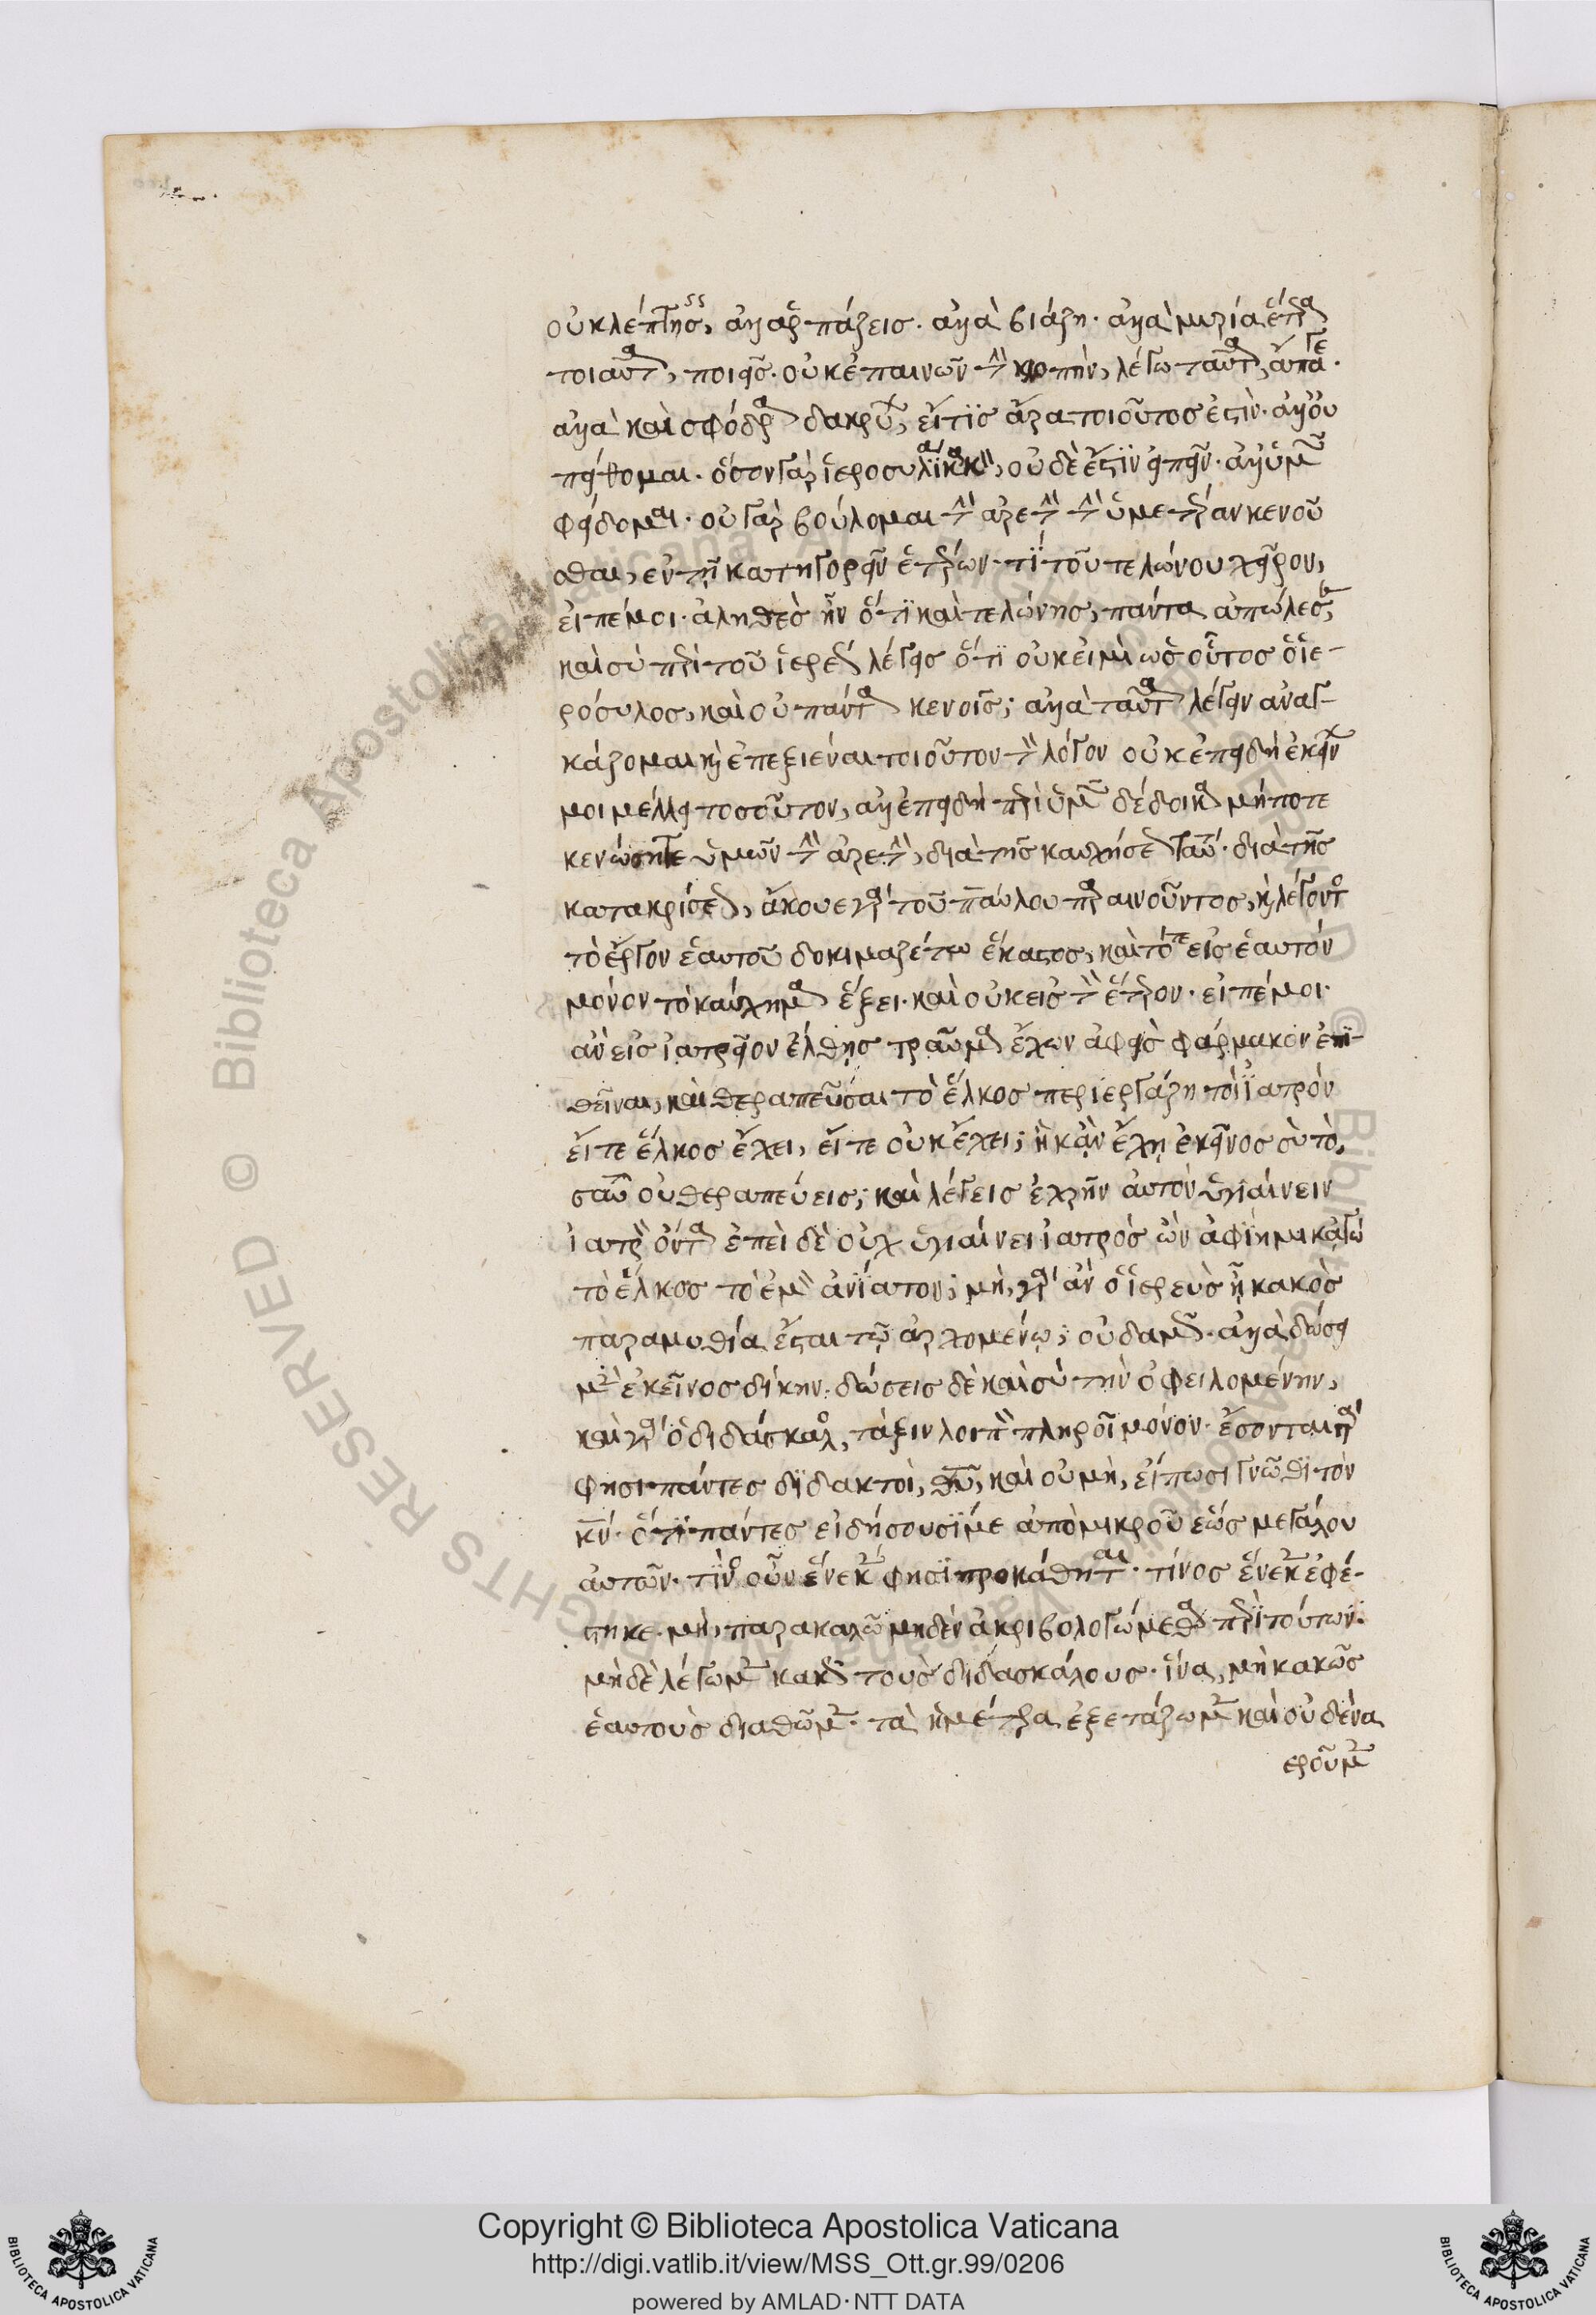 οὐ κλέπτης, ἀλλ' ἁρπάζεις. ἀλλὰ βιάζη. ἀλλὰ μυρία ἕτερα
τοιαῦτα, ποιεῖς. οὐκ ἐπαινῶν τὴν κλοπὴν, λέγω ταῦτα, ἄπαγε.
ἀλλὰ καὶ σφόδρα δακρύων, εἴ τις ἄρα τοιοῦτος ἐστὶν. ἀλλ' οὐ
πείθομαι. ὅσον γὰρ ἱεροσυλία κακὸν, οὐδὲ ἔστιν εἰπεῖν. ἀλλ' ὑμῶν
φείδομαι. οὐ γὰρ βούλομαι τὴν ἀρετὴν τὴν ὑμετέραν κενοῦ
σθαι, ἐν τῆ κατηγορεῖν ἑτέρων. τί τοῦ τελώνου χεῖρον,
εἰπέ μοι. ἀληθὲς ἦν ὅτι καὶ τελώνης, πάντα ἀπώλεσε,
καὶ σὺ περὶ τοῦ ἱερέως λέγεις ὅτι οὐκ εἰμὶ ὡς οὗτος ὁ ἱε-
ρόσυλος, καὶ οὐ πάντα κενοῖς; ἀλλὰ ταῦτα λέγειν ἀναγ-
κάζομαι καὶ ἐπεξιέναι τοιοῦτον τὸν λόγον οὐκ ἐπειδὴ ἐκείνων
μοι μέλλει τοσοῦτον, ἀλλ' ἐπειδὴ περὶ ὑμῶν δέδοικα μήποτε
κενώσητε ὑμῶν τὴν ἀρετὴν, διὰ τῆς καυχήσεως ταύτης. διὰ τῆς
κατακρίσεως, ἄκουε γὰρ τοῦ παύλου παραινοῦντος, καὶ λέγοντος
τὸ ἔργον ἑαυτοῦ δοκιμαζέτω ἕκαστος, καὶ τότε εἰς ἑαυτόν
μόνον τὸ καύχημα ἕξει. καὶ οὐκ εἰς τὸν ἕτερον. εἰπέ μοι.
ἂν εἰς ἰατρεῖον ἔλθης τραῦμα ἔχων ἀφεὶς φάρμακον ἐπι-
θεῖναι, καὶ θεραπεῦσαι τὸ ἕλκος περιεργάζη τὸν ἰατρόν
εἴτε ἕλκος ἔχει, εἴτε οὐκ ἔχει; ἢ κἂν ἔχη ἐκεῖνος σὺ τὸ,
σαυτοῦ οὐ θεραπεύεις; καὶ λέγεις ἐχρῆν αὐτὸν ὑγιαίνειν
ἰατρὸν ὄντα ἐπεὶ δὲ οὐχ ὑγιαίνει ἰατρὸς ὢν ἀφίημι κἀγώ
τὸ ἕλκος τὸ ἐμὸν ἀνίατον; μὴ, γὰρ ἂν ὁ ἱερεὺς ᾖ κακὸς
παραμυθία ἔσται τῷ ἀρχομένῳ; οὐδαμῶς. ἀλλὰ δώσει
μὲν ἐκεῖνος δίκην. δώσεις δὲ καὶ σὺ τὴν ὀφειλομένην,
καὶ γὰρ ὁ διδάσκαλος, τάξιν λοιπὸν πληροῖ μόνον. ἔσονται γὰρ
φησι πάντες διδακτοὶ, θυ, καὶ οὐ μὴ, εἴπωσι γνῶθι τὸν
κν. ὅτι πάντες εἰδήσουσί με ἀπὸ μικροῦ ἕως μεγάλου
αὐτῶν. τίνος οὖν ἕνεκεν φησὶ προκάθηται. τίνος ἕνεκεν ἐφέ-
στηκε. μὴ, παρακαλῶ μηδὲν ἀκριβολογώμεθα περὶ τούτων.
μὴ δὲ λέγωμεν κακῶς τοὺς διδασκάλους. ἵνα, μὴ κακῶς
ἑαυτοὺς διαθῶμεν. τὰ ἡμέτερα ἐξετάζωμεν καὶ οὐδένα
ἐροῦμεν
Copyright © Biblioteca Apostolica Vaticana
http://digi.vatlib.it/view/MSS_Ott.gr.99/0206
powered by AMLAD·NTT DATA